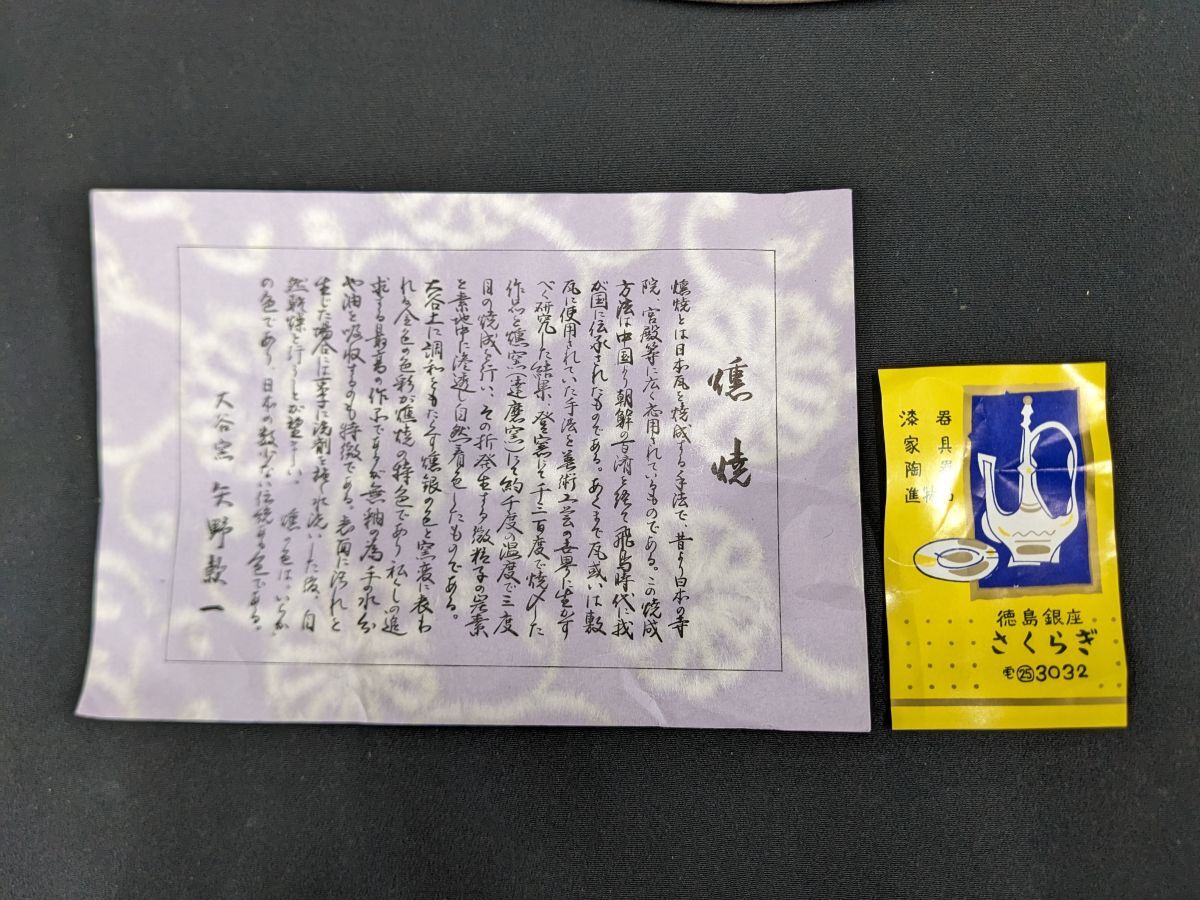 燻焼
燻焼とは日本瓦を焼成する手法で、昔より日本の寺
院、宮殿等に広く応用されているものである。この焼成
方法は中国より朝鮮の百済を経て飛鳥時代に我
が国に伝承されたものである。あくまで瓦或いは敷
瓦に使用されていた手法を美術工芸の世界に生かす
べく研究した結果、登窯にて千二百度で焼〆た
作品を燻窯(達磨窯)にて約千度の温度で三度
目の焼成を行い、その折発生する微粒子の炭素
を素地中に浸透し自然着色したものである。
大谷土に調和をもたらす燻銀の色と窯変に表わ
れる金色の色彩が燻焼の特色であり私しの追
求する最高の作品ですが無釉の為手の水分
や油を吸収するのも特徴である。表面に汚れを
生じた場合には
洗剤を
水洗いした後、自
然乾燥を行うことが望ましい。燻の色は、いぶし
の色であり、日本の数少ない伝統ある色である。
大谷窯 矢野款一
漆器
家具
陶器
進物
徳島銀座
さくらぎ
㉕3032